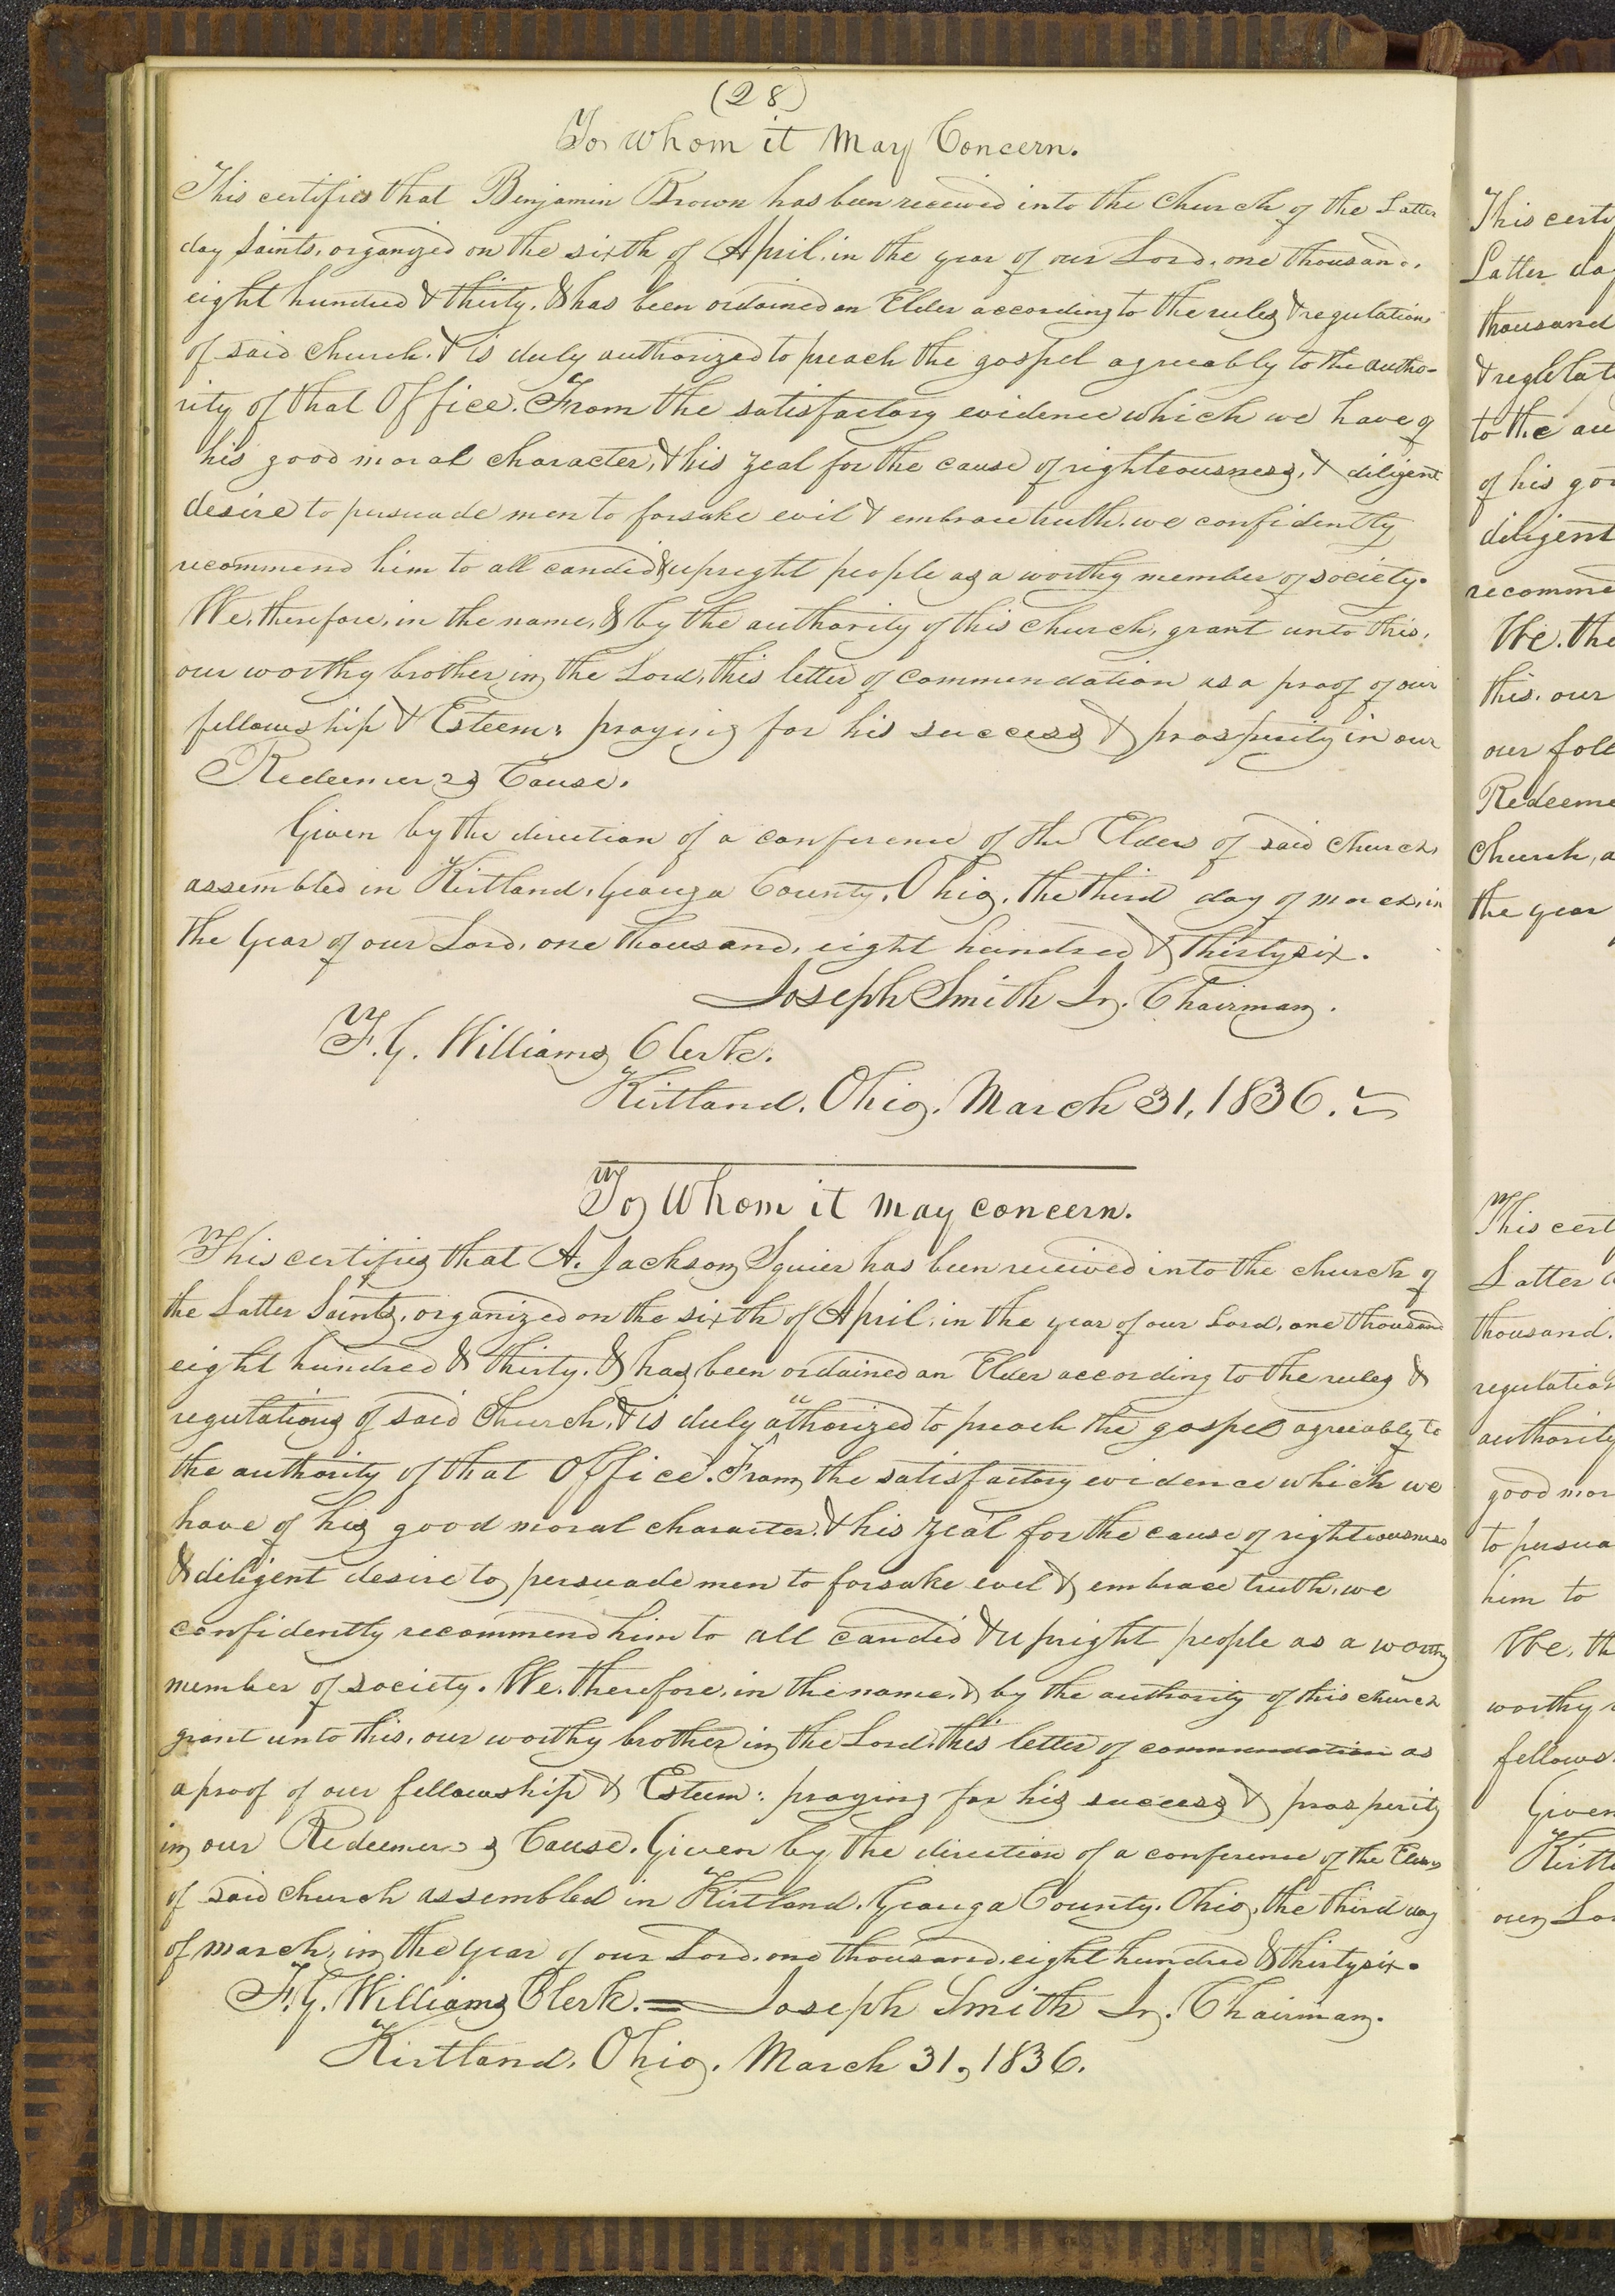 (28)
To whom it May Concern.
This certifies that Benjamin Brown has been received into the Church of the Latter
day Saints, organized on the sixth of April, in the year of our Lord, one thousand,
eight hundred & thirty, & has been ordained an Elder according to the rules & regulations
of said church, & is duly authorized to preach the gospel agreeably to the autho-
rity of that Office. From the satisfactory evidence which we have of
his good moral character, & his zeal for the cause of righteousness, & diligent
desire to persuade men to forsake evil & embrace truth, we confidently
recommend him to all candid & upright people as a worthy member of society.
We, therefore, in the name, & by the authority of this church, grant unto this,
our worthy brother in the Lord, this letter of commendation as a proof of our
fellowship & Esteem: praying for his success & prosperity in our
Redeemer's Cause.
Given by the direction of a conference of the Elders of said church,
assembled in Kirtland, Geauga County, Ohio, the third day of march, in
the Year of our Lord, one thousand, eight hundred & thirty six.
Joseph Smith Jr. Chairman.
F. G. Williams Clerk.
Kirtland, Ohio, March 31, 1836.
To Whom it may concern.
This certifies that A. Jackson Squier has been received into the church of
the Latter Saints, organized on the sixth of April, in the year of our Lord, one thousand
eight hundred & thirty, & has been ordained an Elder according to the rules &
regulations of said Church, & is duly authorized to preach the gospel agreeably to
the authority of that Office. From the satisfactory evidence which we
have of his good moral character, & his zeal for the cause of righteousness
& diligent desire to persuade men to forsake evel & embrace truth, we
confidently recommend him to all candid & upright people as a worthy
member of society. We, therefore, in the name, & by the authority of this church
grant unto this, our worthy brother in the Lord, this letter of commendation as
a proof of our fellowship & Esteem: praying for his success & prosperity
in our Redeemer's Cause. Given by the direction of a conference of the Elders
of said church assembled in Kirtland, Geauga County, Ohio, the third day
of march, in the year of our Lord, one thousand, eight hundred & thirty six.
F. G. Williams Clerk. = Joseph Smith Jr. Chairman.
Kirtland, Ohio, March 31, 1836.
This
Latter
thousand
to the
of his
diligent
We, the
this, our
our
Church, a
the year
This
Latter
thousand,
authority
good
to
him to
We, th
worthy
Given
our